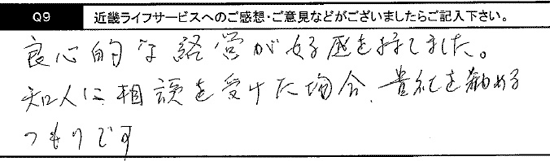 Q9 近畿ライフサービスへのご感想・ご意見などがございましたらご記入下さい。
良心的な経営が好感を持てました。
知人に相談を受けた場合、貴社を勧める
つもりです